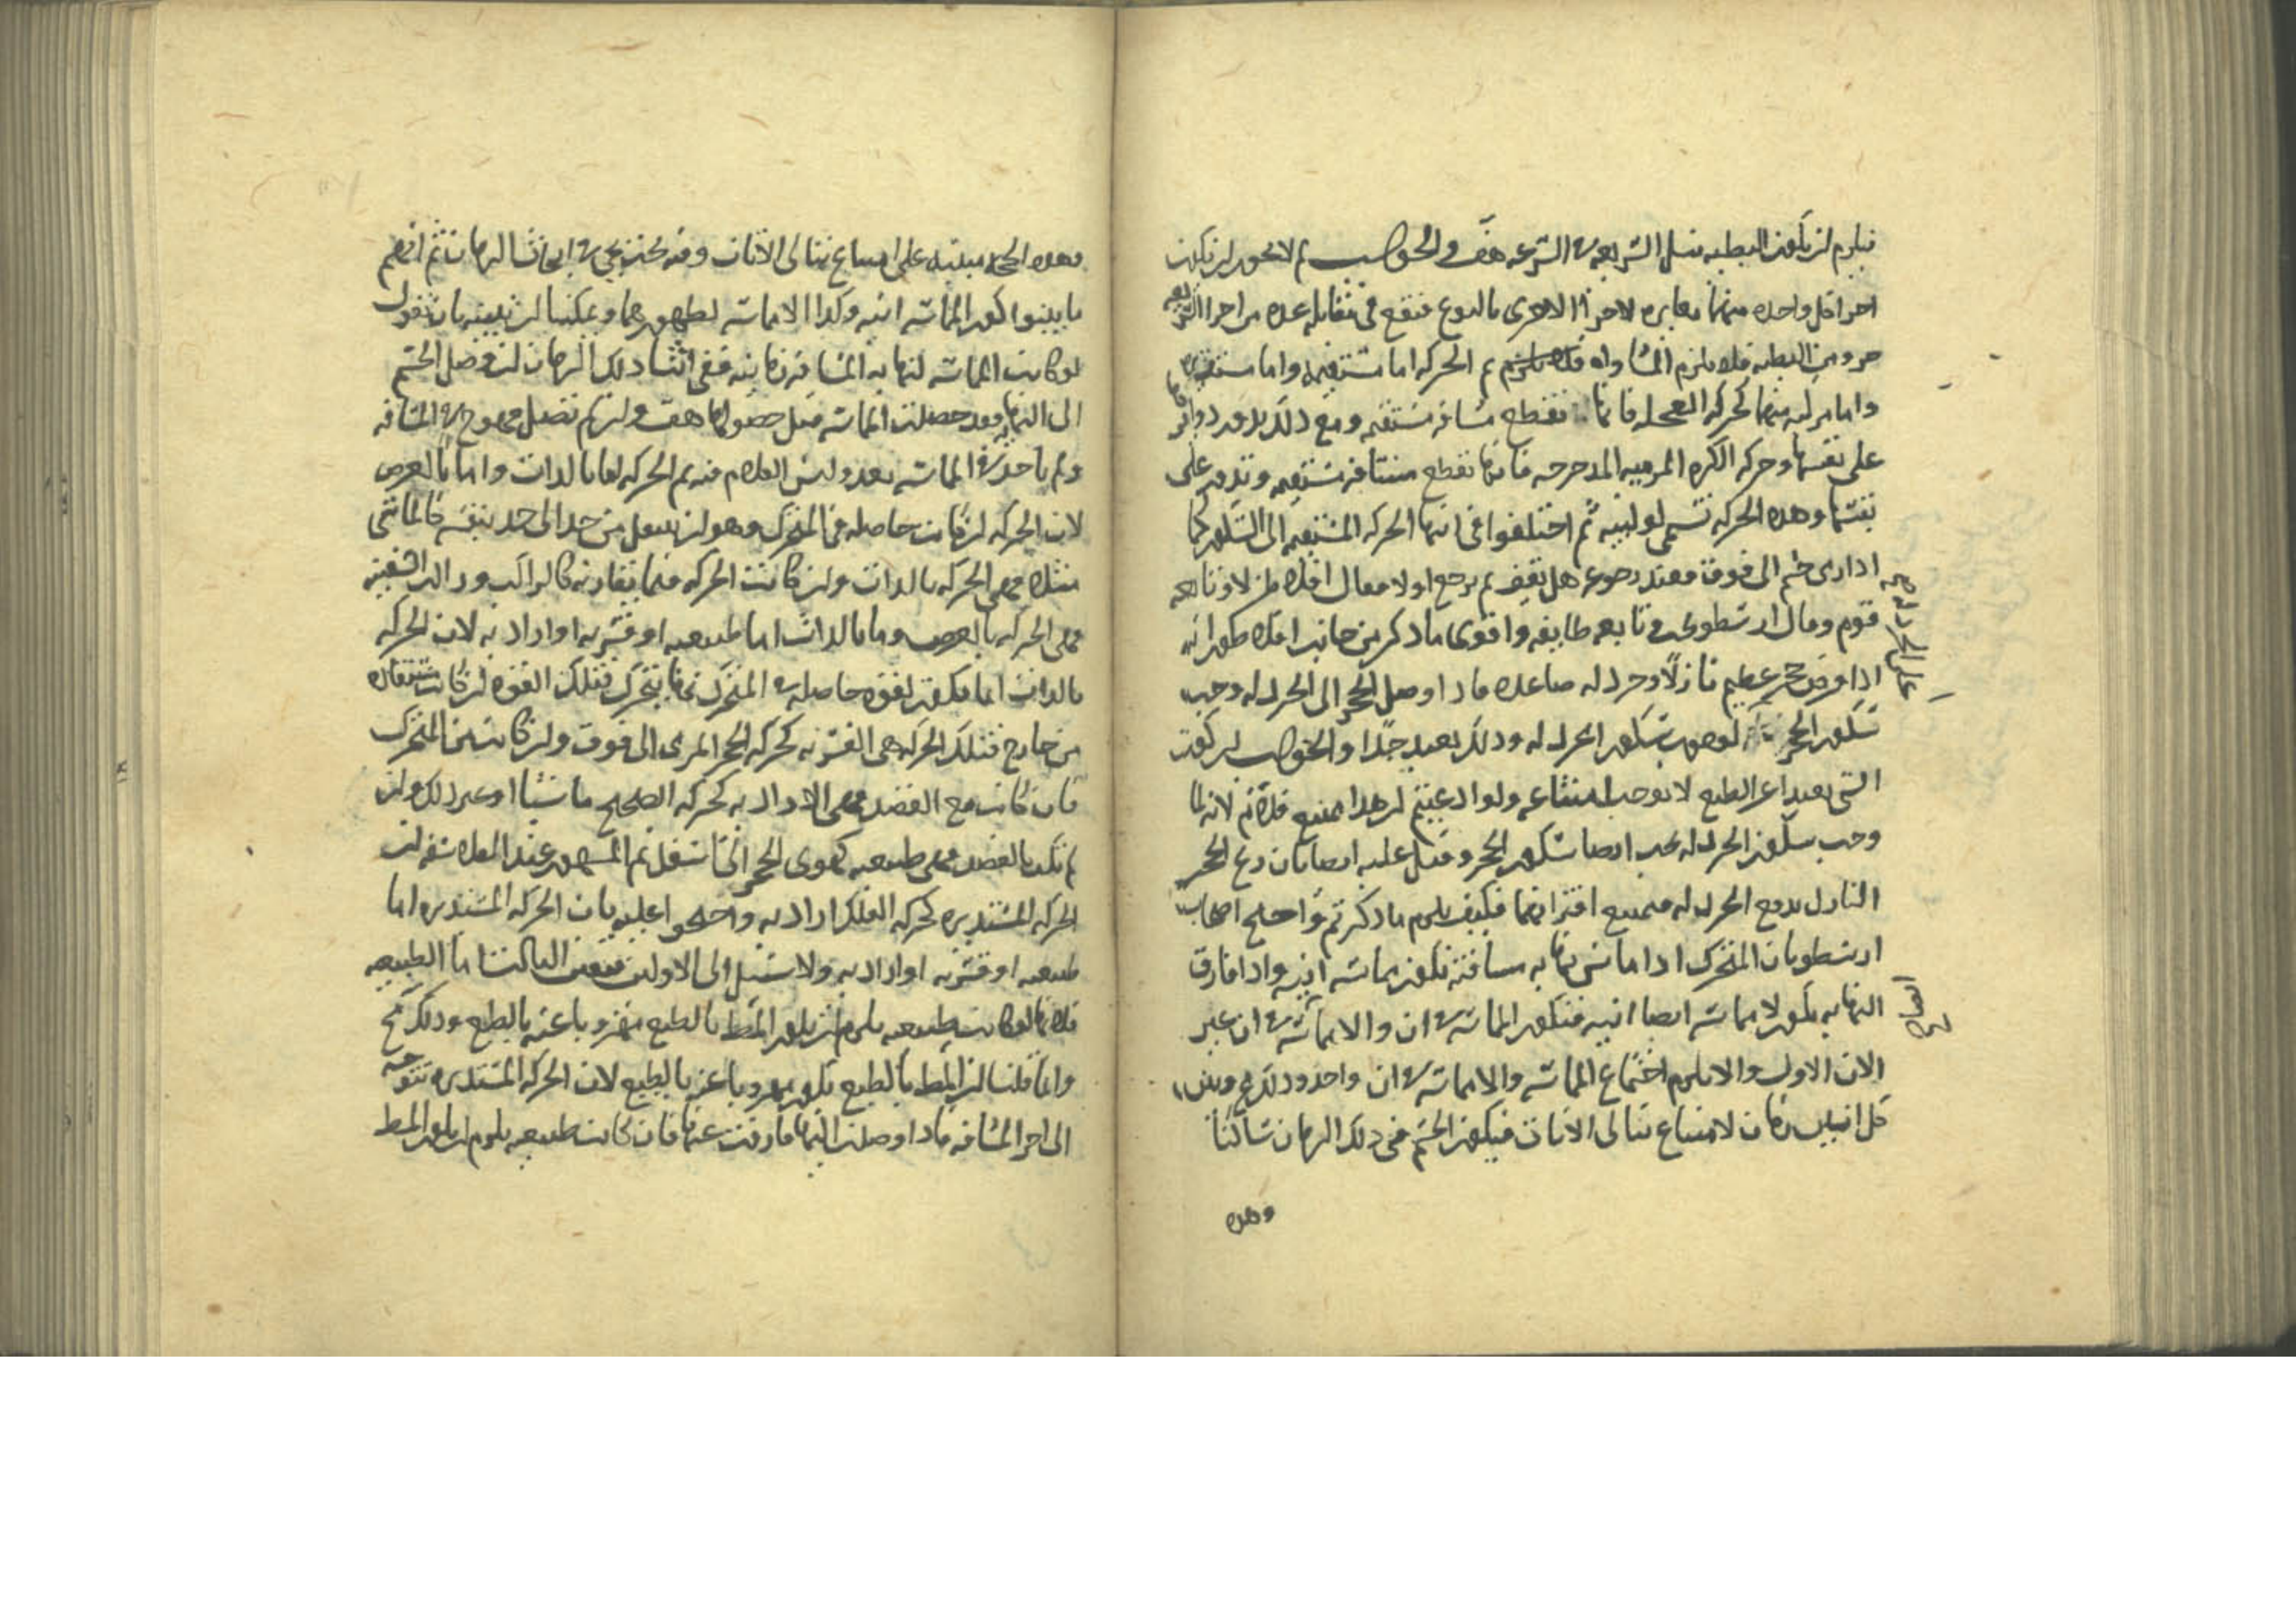 فيلزم ان يكون البطيه مثل السريعه في السرعه هف والجواب لم لا يجوز ان يكون
اجزا كل واحده منهما مغايره لاجزا الاخرى بالنوع فيقع في مقابله عده من اجزا السريعه
جزو من البطيه فلا يلزم المساواه ثم الحركه اما مستقيمه واما مستديره
واما مركبه منهما كحركه العجله فانها تقطع مسافه مستقيمه ومع ذلك يدور دوائر
على نفسها وحركه الكره المرميه المدحرجه فانها تقطع مسافه مستقيمه وتدور على
نفسها وهذه الحركه تسمى لولبيه ثم اختلفوا في انتها الحركه المستقيمه الى السكون كما
اذا رمى جسم الى فوق فعند رجوعه هل يقف ثم يرجع او لا فقال افلاطن لا وتابعه
قوم وقال ارسطو يجب وتابعه طايفه واقوى ما ذكر من جانب افلاطون انه
اذا فرض حجر عظيم نازلا وخردله صاعده فاذا وصل الحجر الى الخردله وجب
سكون الحجر لوجوب سكون الخردله وذلك بعيد جدا والجواب ان كون
الشي بعيدا عن الطبع لا يوجب امتناعه ولو ادعيتم ان هذا ممتنع فلا نم لانه لما
وجب سكون الخردله يجب ايضا سكون الحجر وقيل عليه ايضا بان ريح الحجر
النازل يدفع الخردله فيمتنع اقترانهما فكيف يلزم ما ذكرتم واحتج اصحاب
ارسطو بان المتحرك اذا ماس نهايه مسافته تكون مماسه انيه واذا فارق
النهايه يكون لا مماسه ايضا انيه فتكون المماسه في ان واللامماسه في ان غير
الان الاول والا يلزم اجتماع المماسه واللامماسه في ان واحد وذلك مح وبين
كل انين زمان لامتناع تتالى الانات فيكون الجسم في ذلك الزمان ساكنا
وهذه
وهذه الحجه مبنيه على امتناع تتالى الانات وفيه بحث يجي في ابحاث الزمان ثم انهم
ما بينوا كون المماسه انيه وكذا اللامماسه لظهورهما ويمكننا ان نبينه بان نقول
لو كانت المماسه لنهايه المسافه زمانيه ففي اثنا ذلك الزمان ان وصل الجسم
الى النهايه فقد حصلت المماسه قبل حصولها هف وان لم تصل فهو في المسافه
ولم ياخذ في المماسه بعد وليس الكلام فيه ثم الحركه اما بالذات واما بالعرض
لان الحركه ان كانت حاصله في المتحرك وهو ان ينتقل من حد الى حد بنفسه كالماشي
مثلا فهي الحركه بالذات وان كانت الحركه فيما يقارنه كالراكب وذا السفينه
فهي الحركه بالعرض وما بالذات اما طبيعيه او قسريه او اراديه لان الحركه
بالذات انما تكون لقوه حاصله في المتحرك بها يتحرك فتلك القوه ان كانت مستفاده
من خارج فتلك الحركه هي القسريه كحركه الحجر المرمى الى فوق وان كانت من المتحرك
فان كانت مع القصد فهي الاراديه كحركه الصحيح ماشيا او غير ذلك وان
لم تكن بالقصد فهي طبيعيه كهوى الحجر الى اسفل ثم المشهور عند الفلاسفه ان
الحركه المستديره كحركه الفلك اراديه واحتجوا عليه بان الحركه المستديره اما
طبيعيه او قسريه او اراديه ولا سبيل الى الاولين فتعين الثالث اما الطبيعيه
فلانها لو كانت طبيعيه يلزم ان يكون المط بالطبع مهروبا عنه بالطبع وذلك مح
وانما قلنا ان المط بالطبع يكون مهروبا عنه بالطبع لان الحركه المستديره تتوجه
الى اخر المسافه فاذا وصلت اليها فارقت عنها فان كانت طبيعيه يلزم ان يكون المط